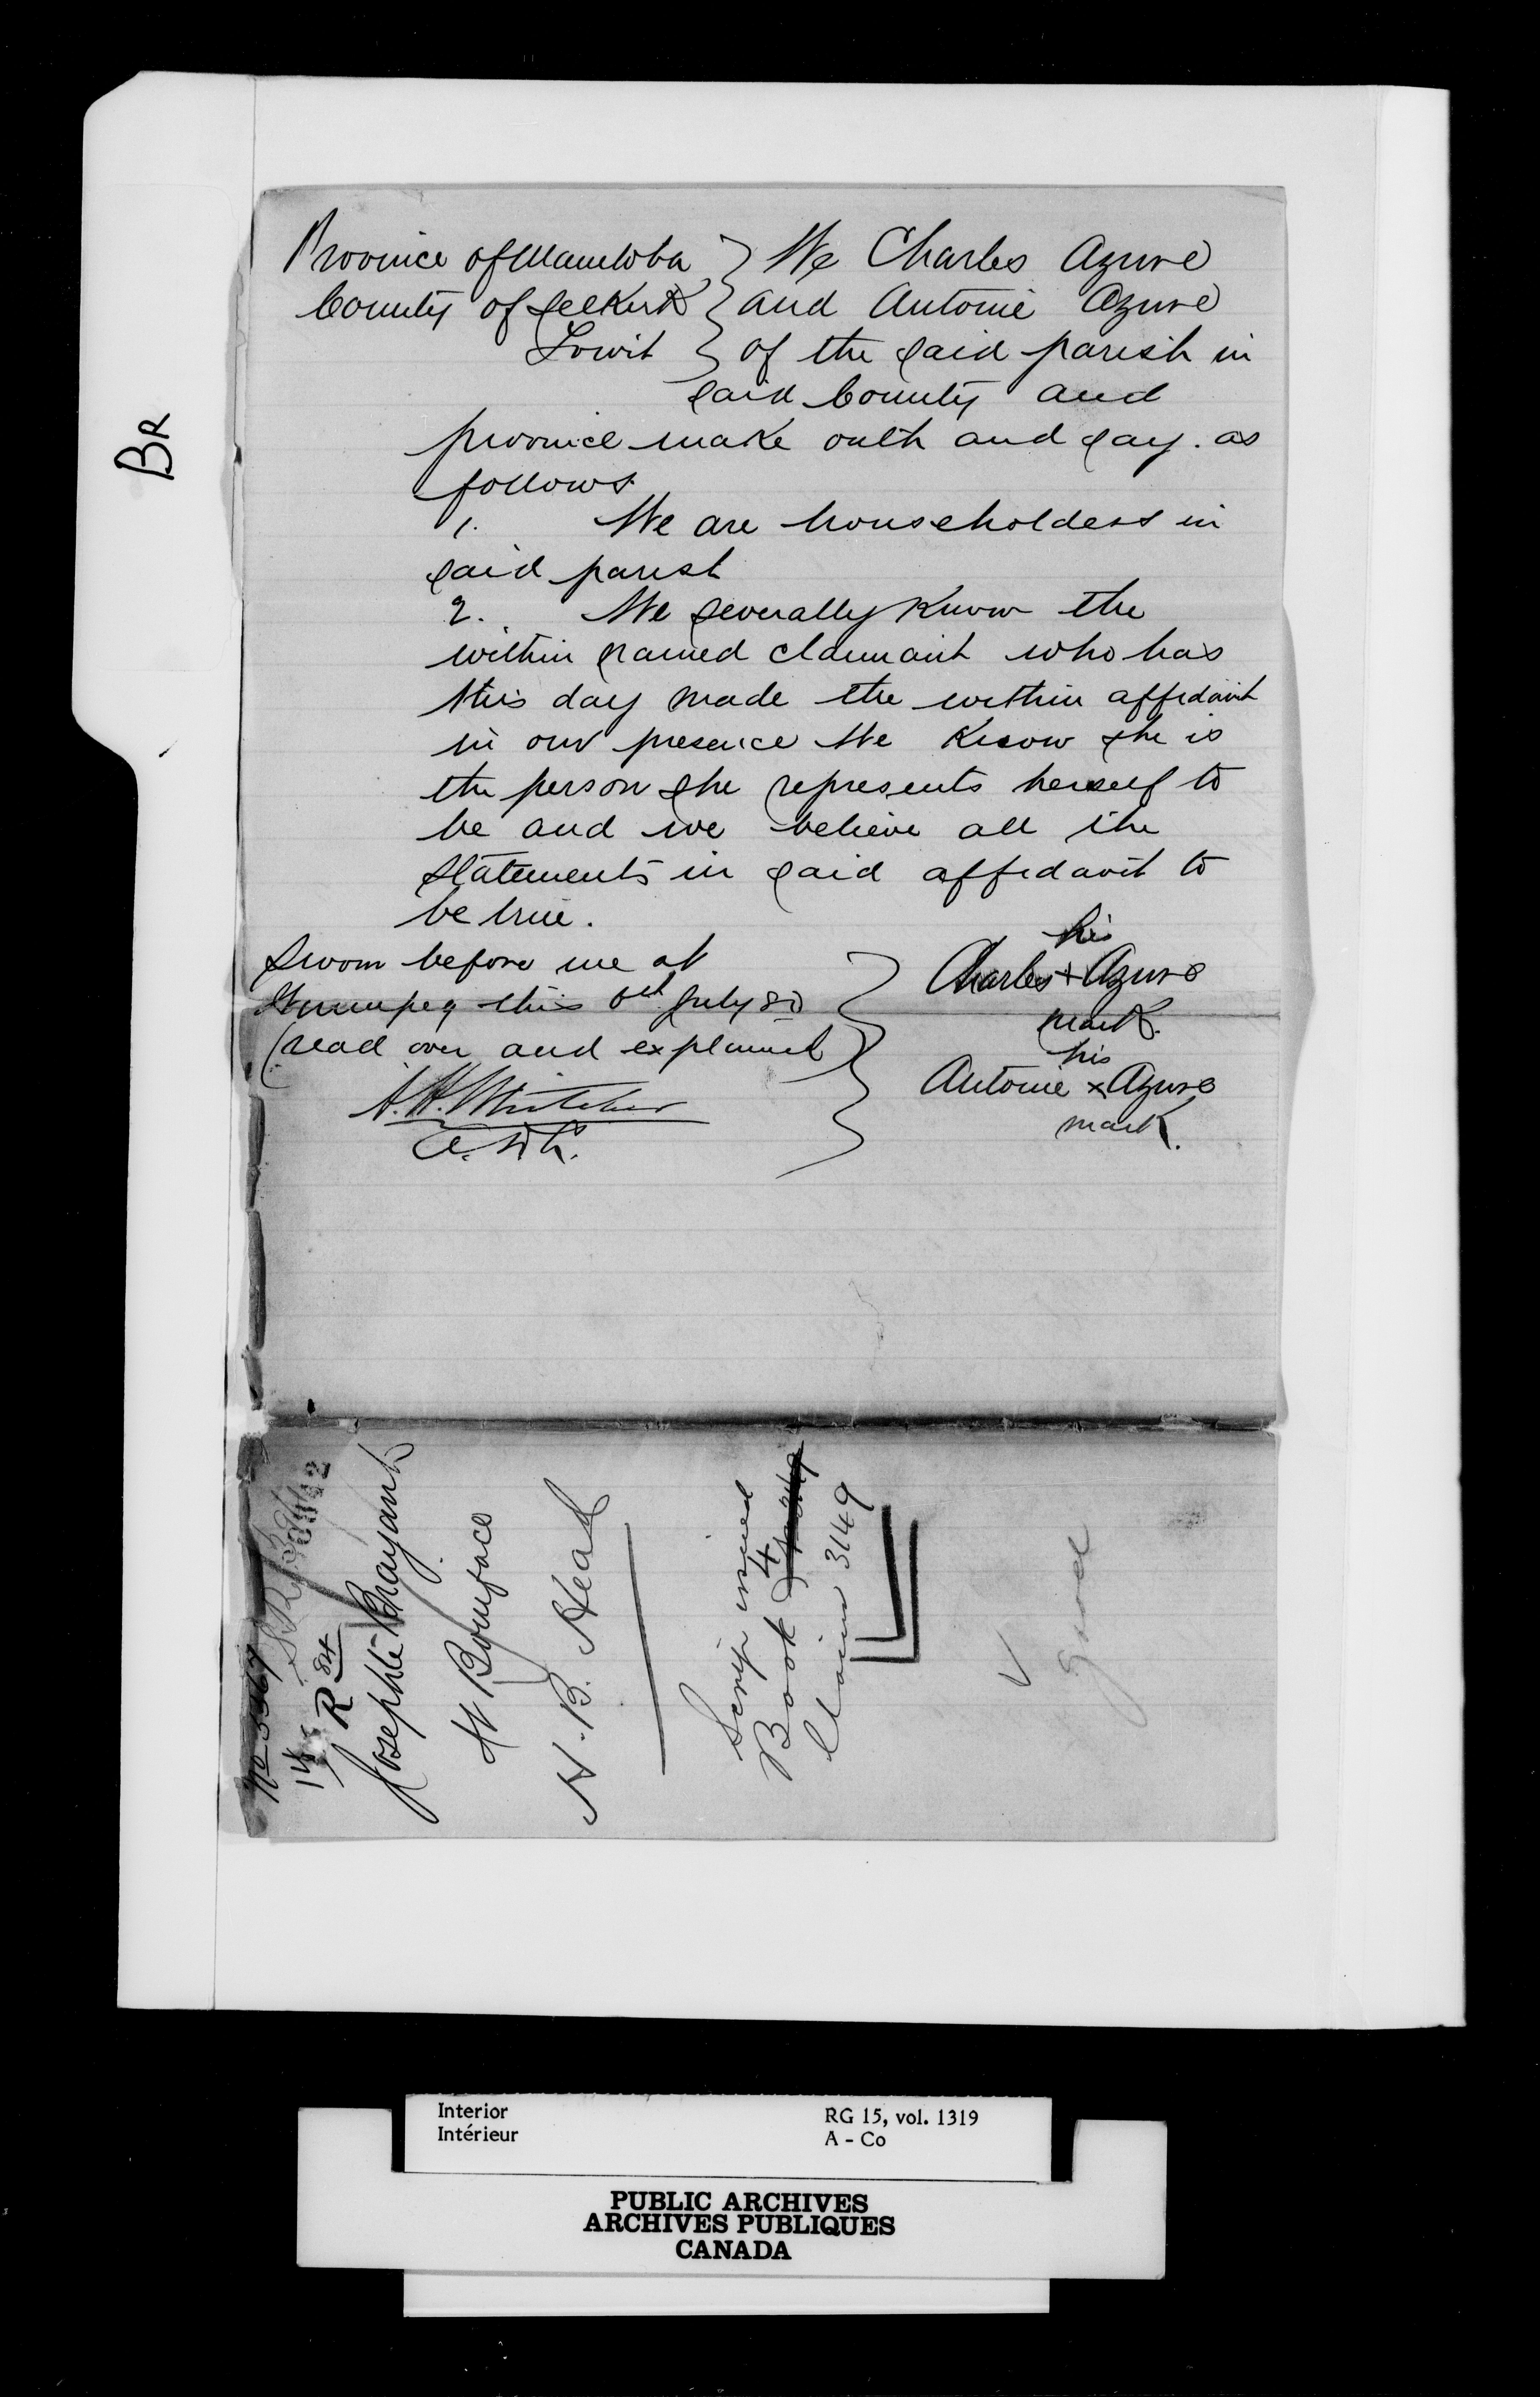 BR
Province of Manitoba } We Charles Azure
County of Selkirk } and Antoine Azure
Towit } of the said parish in
said County and
province make oath and say. as
follows.
1. We are householders in
said parish
2. We severally know the
within named claimant who has
this day made the within affidavit
in our presence We Know she is
the person she represents herself to
be and we believe all the
statements in said affidavit to
be true.
Sworn before me at
Winnipeg this 6th July 80
(read over and explained)
his
Charles + Azure
mark.
his
Antoine x Azure
mark.
No 3367
14
R 84
Josephte Brayant
St Boniface
H. B. Head
Scrip issued
Book 4
Claim 3149
Good
Interior
Intérieur
RG 15, vol. 1319
A - Co
PUBLIC ARCHIVES
ARCHIVES PUBLIQUES
CANADA